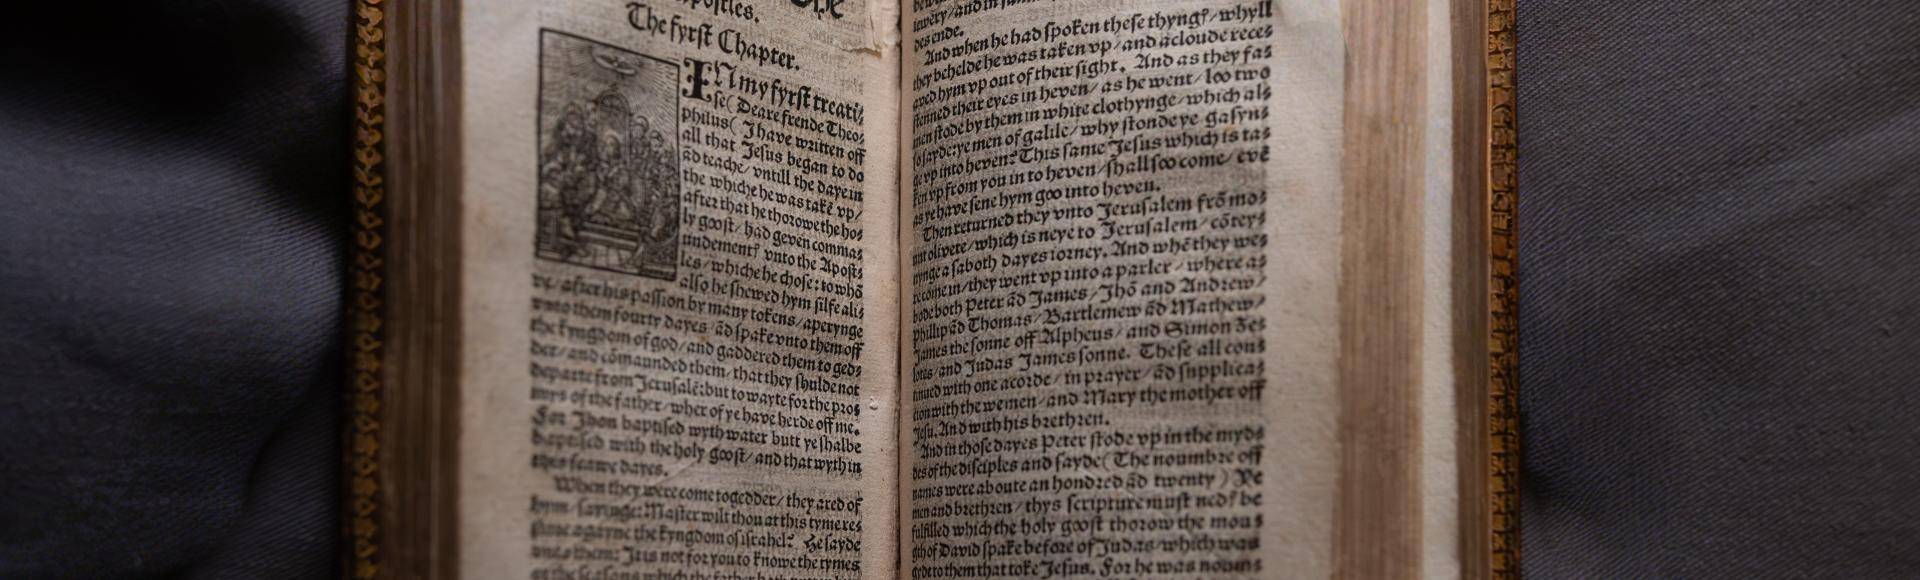 postles.
The fyrst Chapter.
IN my fyrst treati⸗
se( Deare frende Theo⸗
philus( I have written off
all that Jesus began to do
ād teache/ vntill the daye in
the whiche he was takē vp/
after that he thorowe the ho⸗
ly goost/ had geven comma⸗
undementꝭ vnto the Apost⸗
les/ whiche he chose: to whō
also he shewed hym silfe ali⸗
ve/ after his passion by many tokens/ aperynge
vnto them fourty dayes/ ād spake vnto them off
the kyngdom of god/ and gaddered them to ged⸗
der/ and cōmaunded them/ that they shulde not
departe from Jerusalē: but to wayte for the pro⸗
mys of the father/ wher of ye have herde off me.
For Jhon baptised wyth water butt ye shalbe
baptised with the holy goost/ and that wyth in
this feawe dayes.
When they were come togedder/ they axed of
hym/ sayinge: Master wilt thou at this tyme re⸗
store agayne the kyngdom of israhel? He sayde
vnto them: It is not for you to knowe the tymes
iewry/ and in
des ende.
And when he had spoken these thyngꝭ/ whyll
they behelde he was taken vp/ and a cloude rece⸗
aved hym vp out of their sight. And as they fas
stenned their eyes in heven/ as he went/ loo two
men stode by them in white clothynge/ which al⸗
so sayde: ye men of galile/ why stonde ye gasyn⸗
ge vp into heven? This same Jesus which is ta⸗
ken vp from you in to heven/ shall soo come/ evē
as ye have sene hym goo into heven.
Then returned they vnto Jerusalem frō mo⸗
unt olivete/ which is neye to Jerusalem/ cōtey⸗
nynge a saboth dayes iorney. And whē they we⸗
re come in/ they went vp into a parler/ where a⸗
bode both Peter ād James/ Jhō and Andrew/
Phillip ād Thomas/ Bartlemew ād Mathew/
James the sonne off Alpheus/ and Simon Ze⸗
lotes/ and Judas James sonne. These all con⸗
tinued with one acorde/ in prayer/ ād supplica⸗
cion with the wemen/ and Mary the mother off
Jesu. And with his brethren.
And in those dayes Peter stode vp in the myd⸗
des of the disciples and sayde( The noumbre off
names were aboute an hondred ād twenty ) Ye
men and brethren/ thys scripture must nedꝭ be
fulfilled which the holy goost thorow the mou⸗
gth of David spake before of Judas/ which was
gyde to them that toke Jesus. For he was noum⸗